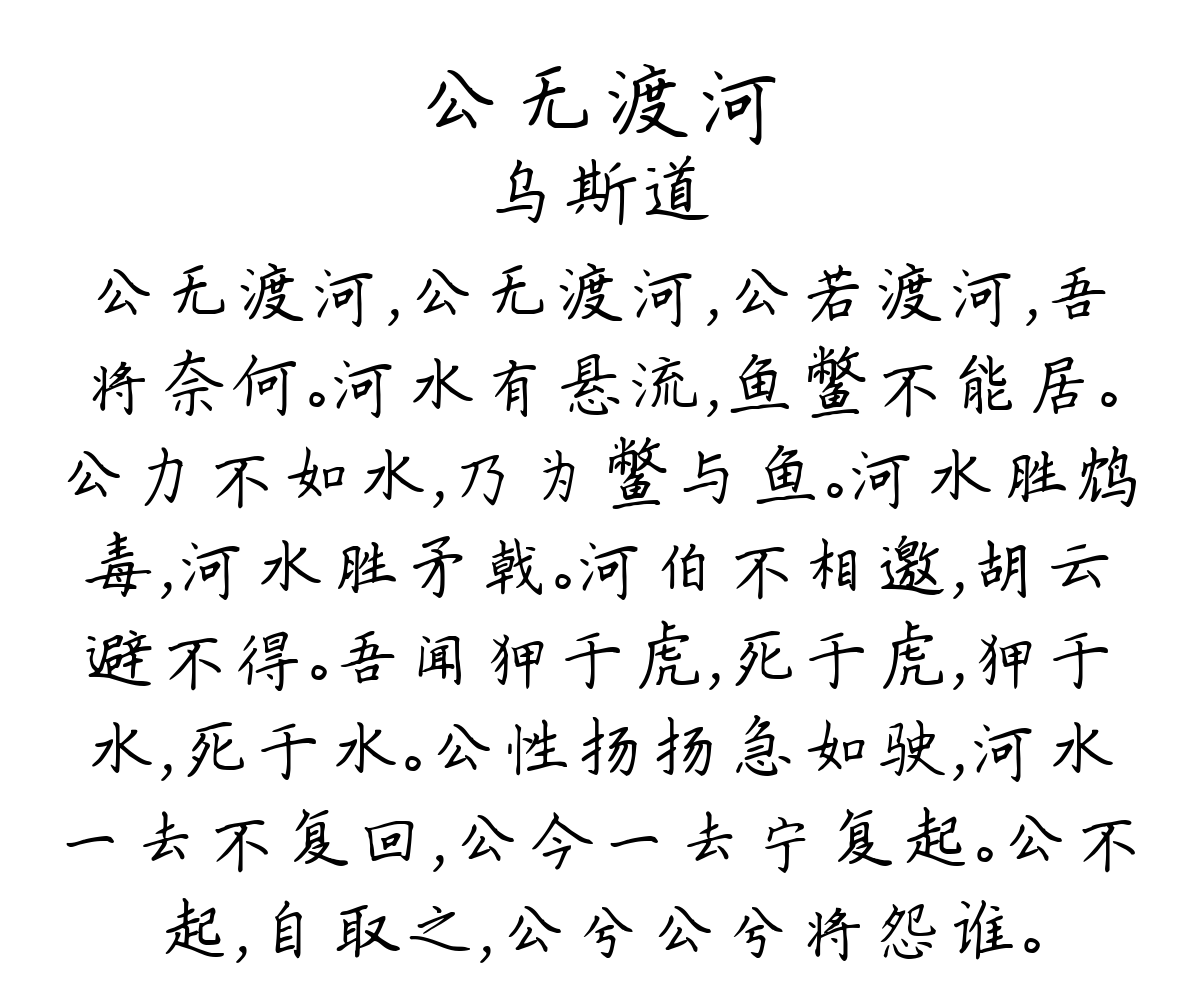 公无渡河
乌斯道
公无渡河,公无渡河,公若渡河,吾
将奈何。河水有悬流,鱼鳖不能居。
公力不如水,乃为鳖与鱼。河水胜鸩
毒,河水胜矛戟。河伯不相邀,胡云
避不得。吾闻狎于虎,死于虎,狎于
水,死于水。公性扬扬急如驶,河水
一去不复回,公今一去宁复起。公不
起,自取之,公兮公兮将怨谁。